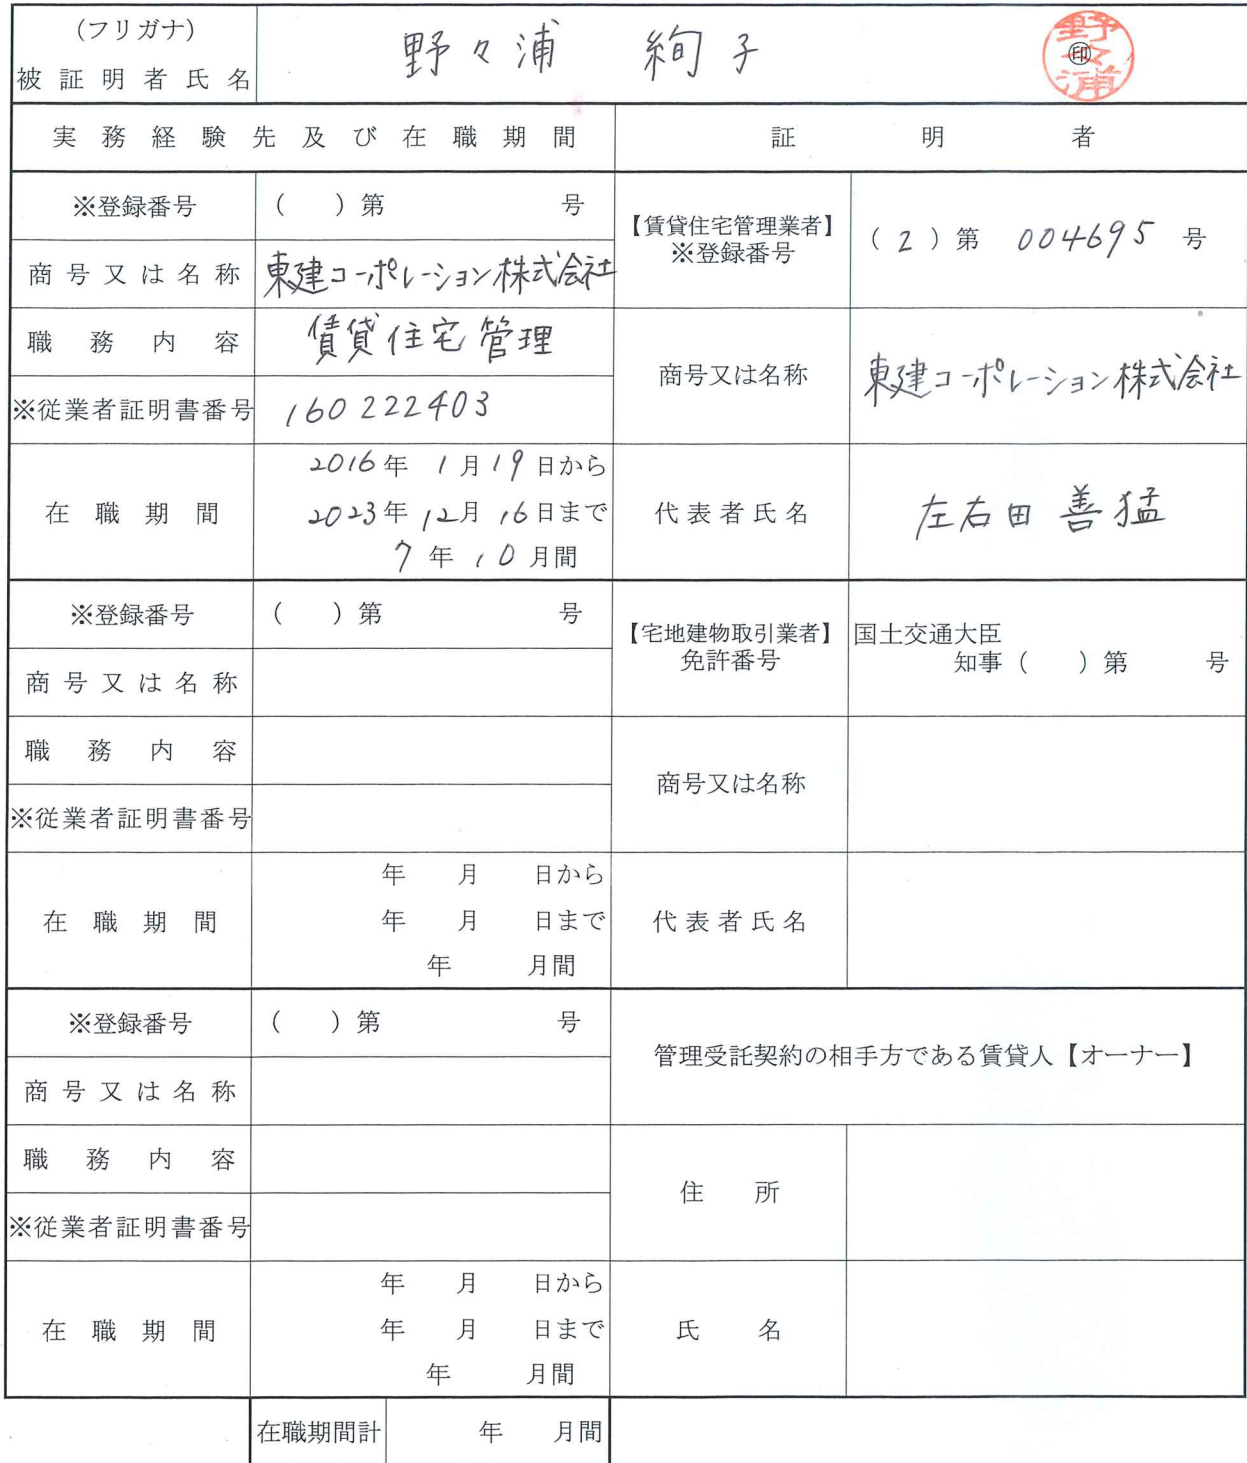 (フリガナ)
被証明者氏名 野々浦 絢子 ㊞ 野々浦
実務経験先及び在職期間 証明者
※登録番号 ( )第 号 【賃貸住宅管理業者】 ※登録番号 (2)第 004695 号
商号又は名称 東建コーポレーション株式会社
職務内容 賃貸住宅管理 商号又は名称 東建コーポレーション株式会社
※従業者証明書番号 160222403
在職期間 2016年 1月19日から 代表者氏名 左右田 善猛
2023年 12月 16日まで
7年 10月間
※登録番号 ( )第 号 【宅地建物取引業者】 免許番号 国土交通大臣
知事( )第 号
商号又は名称
職務内容 商号又は名称
※従業者証明書番号
在職期間 年 月 日から 代表者氏名
年 月 日まで
年 月間
※登録番号 ( )第 号 管理受託契約の相手方である賃貸人【オーナー】
商号又は名称
職務内容 住所
※従業者証明書番号
在職期間 年 月 日から 氏名
年 月 日まで
年 月間
在職期間計 年 月間